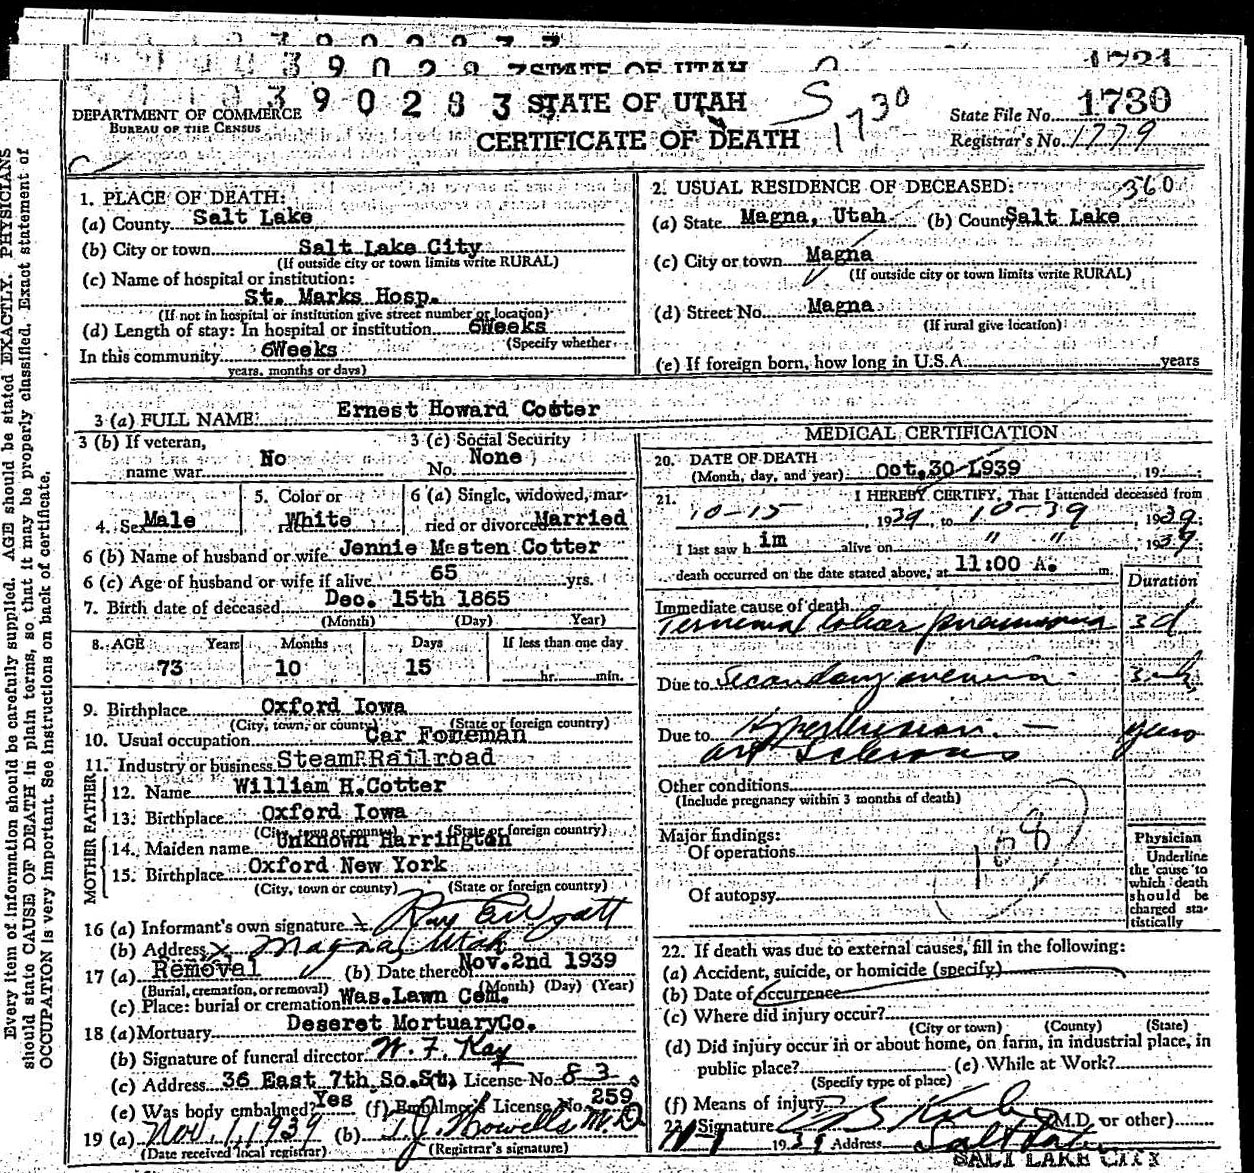 3902837 STATE OF UTAH 1721
3902837 STATE OF UTAH
DEPARTMENT OF COMMERCE
BUREAU OF THE CENSUS
CERTIFICATE OF DEATH
S 1730
State File No. 1730
Registrar's No. 1779
Every item of information should be carefully supplied. AGE should be stated EXACTLY. PHYSICIANS
should state CAUSE OF DEATH in plain terms, so that it may be properly classified. Exact statement of
OCCUPATION is very important. See instructions on back of certificate.
1. PLACE OF DEATH:
(a) County Salt Lake
(b) City or town Salt Lake City
(If outside city or town limits write RURAL)
(c) Name of hospital or institution:
St. Marks Hosp.
(If not in hospital or institution give street number or location)
(d) Length of stay: In hospital or institution 6Weeks
(Specify whether
In this community 6Weeks
years, months or days)
2. USUAL RESIDENCE OF DECEASED: 360
(a) State Magna, Utah (b) County Salt Lake
(c) City or town Magna
(If outside city or town limits write RURAL)
(d) Street No. Magna
(If rural give location)
(e) If foreign born, how long in U.S.A. years
3 (a) FULL NAME: Ernest Howard Cotter
3 (b) If veteran,
name war No
3 (c) Social Security
No. None
4. Sex Male
5. Color or
race White
6 (a) Single, widowed, mar-
ried or divorced Married
6 (b) Name of husband or wife Jennie Mesten Cotter
6 (c) Age of husband or wife if alive 65 yrs.
7. Birth date of deceased Dec. 15th 1865
(Month) (Day) Year)
8. AGE Years Months Days If less than one day
73 10 15 hr. min.
9. Birthplace Oxford Iowa
(City, town, or county) (State or foreign country)
10. Usual occupation Car Foreman
11. Industry or business Steam Railroad
FATHER
12. Name William H. Cotter
13. Birthplace Oxford Iowa
(City, town or county) (State or foreign country)
MOTHER
14. Maiden name Unknown Harrington
15. Birthplace Oxford New York
(City, town or county) (State or foreign country)
16 (a) Informant's own signature x Ray E Wyatt
(b) Address x Magna, Utah
17 (a) Removal (b) Date thereof Nov. 2nd 1939
(Burial, cremation, or removal) (Month) (Day) (Year)
(c) Place: burial or cremation Was. Lawn Cem.
18 (a) Mortuary Deseret Mortuary Co.
(b) Signature of funeral director W. F. Kay
(c) Address 36 East 7th So. St. License No. 83
(e) Was body embalmed? Yes (f) Embalmer's License No. 259
19 (a) Nov. 1, 1939 (b) T. J. Howells M.D.
(Date received local registrar) (Registrar's signature)
MEDICAL CERTIFICATION
20. DATE OF DEATH
(Month, day, and year) Oct. 30 1939 19
21. I HEREBY CERTIFY, That I attended deceased from
10-15 1939, to 10-39, 1939;
I last saw h im alive on " " 1939;
death occurred on the date stated above, at 11:00 A. m.
Duration
Immediate cause of death
Terminal lobar pneumonia 3d
Due to Secondary anemia
Due to Hypertension - years
art Sclerosis
Other conditions
(Include pregnancy within 3 months of death)
Major findings:
Of operations
Of autopsy
108
Physician
Underline
the cause to
which death
should be
charged sta-
tistically
22. If death was due to external causes, fill in the following:
(a) Accident, suicide, or homicide (specify)
(b) Date of occurrence
(c) Where did injury occur?
(City or town) (County) (State)
(d) Did injury occur in or about home, on farm, in industrial place, in
public place? (e) While at Work?
(Specify type of place)
(f) Means of injury
23. Signature (M.D. or other)
11-1 1939 Address Salt Lake
SALT LAKE CITY